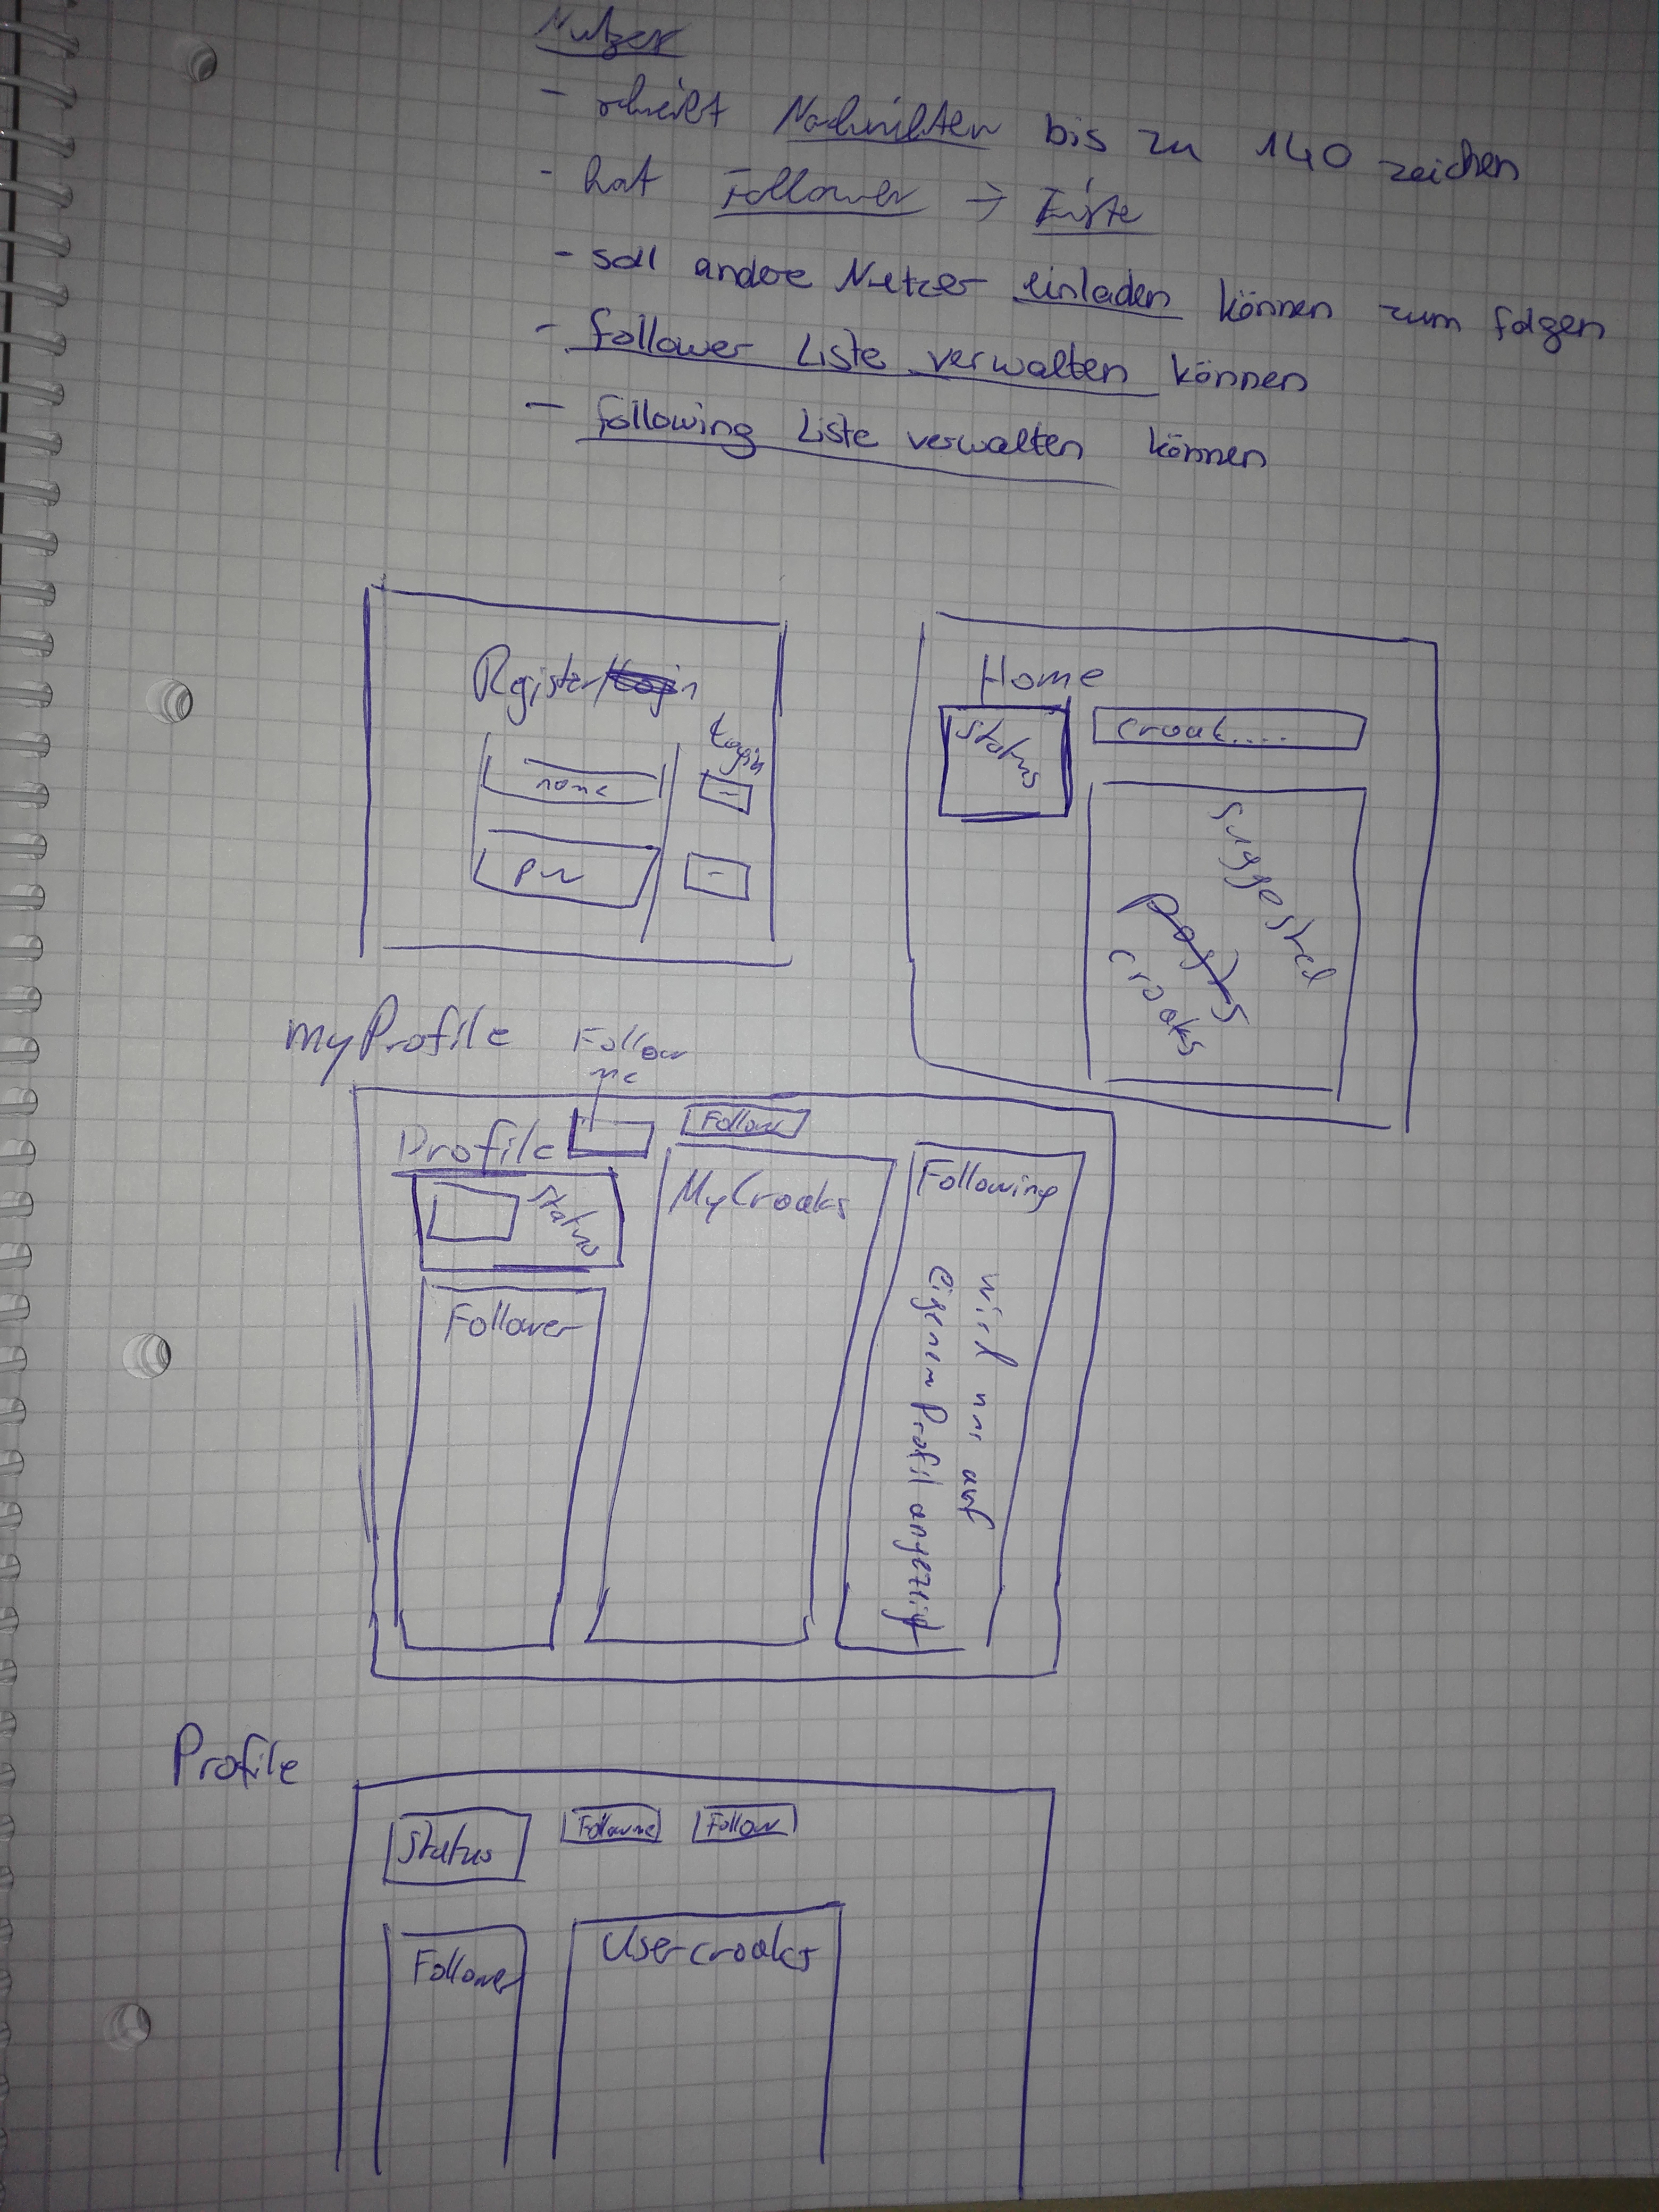 Nutzer
- schreibt Nachrichten bis zu 140 zeichen
- hat Follower → Liste
- soll andere Nutzer einladen können zum folgen
- follower Liste verwalten können
- following Liste verwalten können
Register/Login
Login
name
pw
Home
Status
croak....
suggested
posts
croaks
MyProfile
Follow
me
Profile
Follow
Status
MyCroaks
Following
wird nur auf
eigenem Profil angezeigt
Follower
Profile
Status
Followme
Follow
Follower
Usercroaks